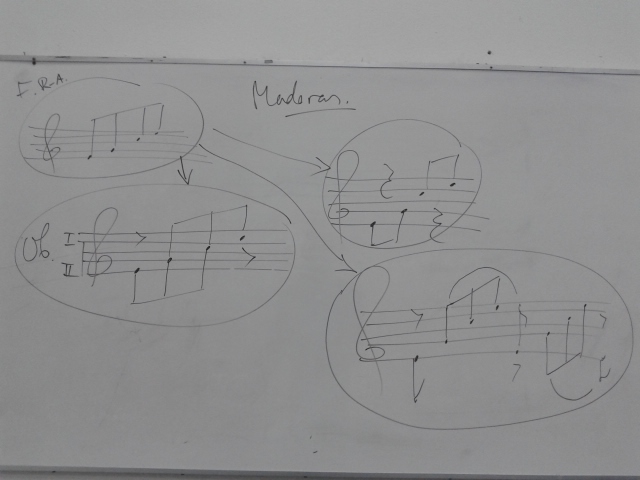 F. R-A.
Maderas.
Ob.
I
II